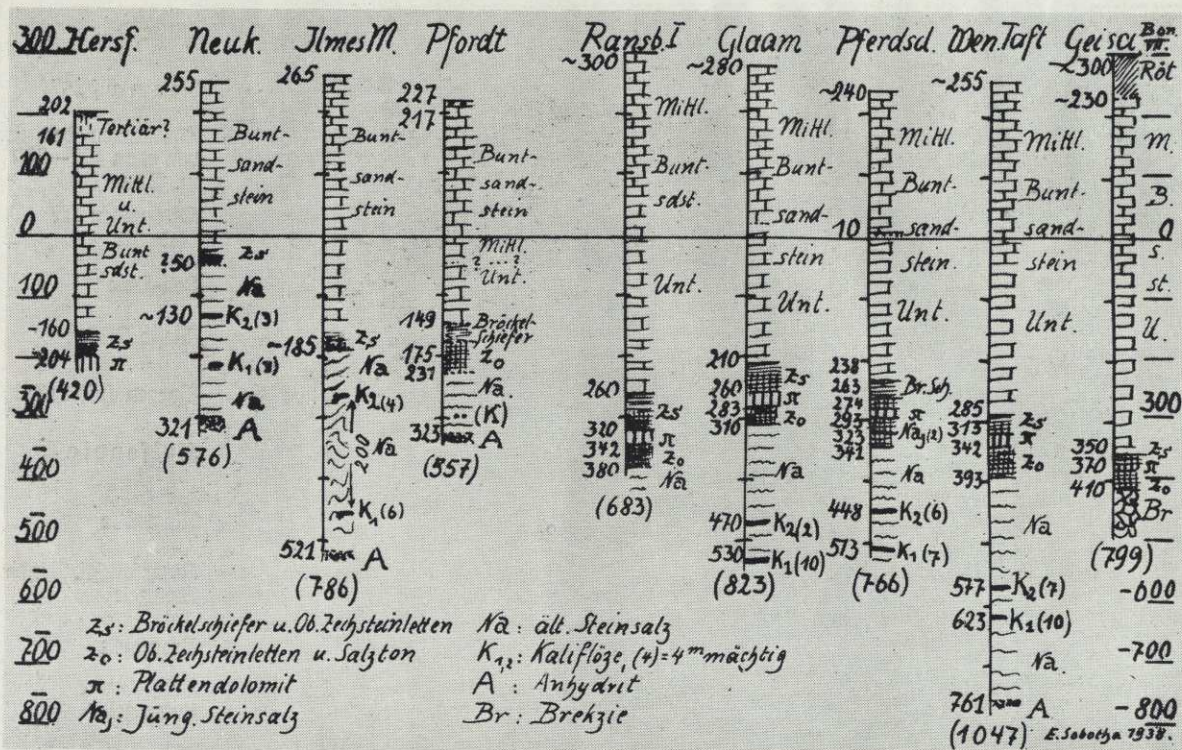 300 Hersf. Neuk. Ilmes M. Pfordt Ransb. I Glaam Pferdsd. Wen. Taft Geisa Bon. VII.
100
0
100
300
400
500
600
700
800
202
161
Tertiär?
Mittl.
u.
Unt.
Bunt
sdst.
-160
-204
zs
π
(420)
255
Bunt-
sand-
stein
?50
zs
Na
~130
K2(3)
K1(3)
Na
321
A
(576)
265
Bunt-
sand-
stein
~185
zs
Na
K2(4)
Na
200
K1(6)
521
A
(786)
227
217
Bunt-
sand-
stein
Mittl.
? ... ?
Unt.
149
Bröckel-
schiefer
175
zo
231
Na
(K)
323
A
(557)
~300
Mittl.
Bunt-
sdst.
Unt.
260
zs
320
π
342
zo
380
Na
(683)
~280
Mittl.
Bunt-
sand-
stein
Unt.
210
zs
260
π
283
zo
310
Na
470
K2(2)
530
K1(10)
(823)
~240
Mittl.
Bunt-
10
sand-
stein.
Unt.
238
263
Br.Sch.
274
π
293
Naj(2)
323
341
Na
448
K2(6)
573
K1(7)
(766)
~255
Mittl.
Bunt-
sand-
stein
Unt.
285
zs
313
π
342
zo
393
Na
577
K2(7)
623
K1(10)
Na.
761
A
(1047)
~300
Röt
~230
M.
B.
0
s.
st.
U.
300
350
zs
370
π
410
zo
Br
(799)
-600
-700
-800
zs: Bröckelschiefer u. Ob. Zechsteinletten
zo: Ob. Zechsteinletten u. Salzton
π: Plattendolomit
Naj: Jüng. Steinsalz
Na: ält. Steinsalz
K1,2: Kaliflöze, (4)=4m mächtig
A: Anhydrit
Br: Brekzie
E. Sobotha 1938.